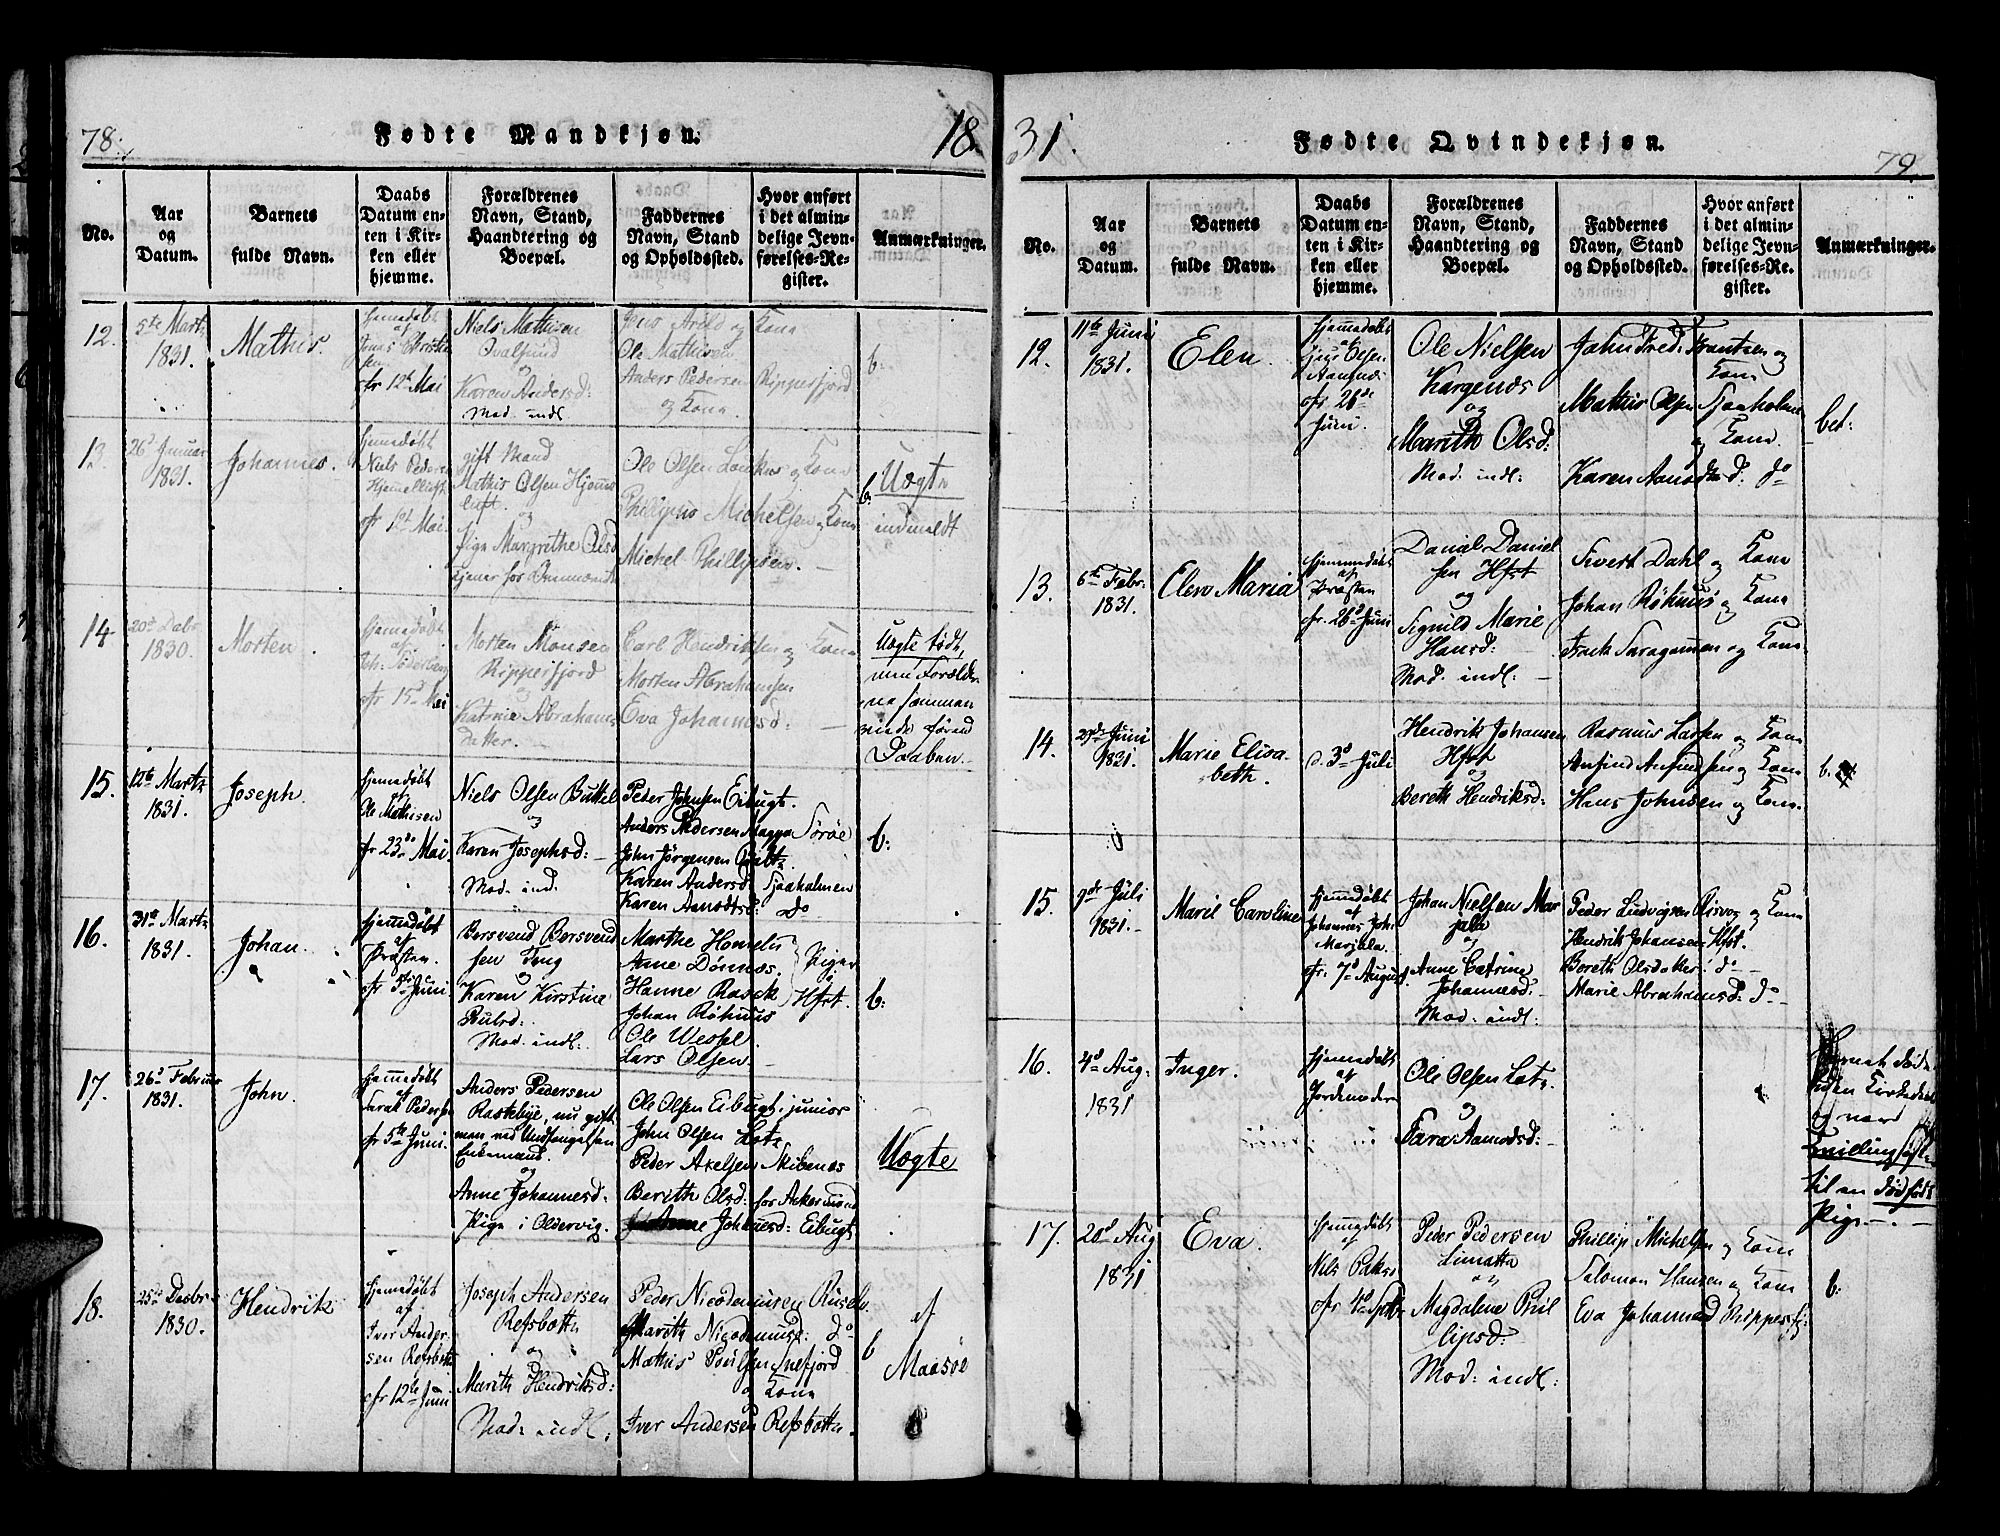 78.
Fødte Mandkjøn.
18
No.
Aar
og
Datum.
Barnets
fulde Navn.
Daabs
Datum en-
ten i Kir-
ken eller
hjemme.
Forældrenes
Navn, Stand,
Haandtering og
Boepæl.
Faddernes
Navn, Stand
og Opholdssted.
Hvor anført
i det almin-
delige Jevn-
førelses-Re-
gister.
Anmærkninger.
12.
5te Marts
1831.
Mathis.
Hjemedøbt
af
Jonas
cfr 12t Mai
Niels Mathisen
Qvalsund
og
Karen Andersd:
Mod. indl
Jens Arild og Kone
Ole Mathisen
Anders Pedersen Ripperfjord
og Kone.
b.
13.
26d Januar
1831.
Johannes.
Hjemedøbt
Niels Pedersen
cfr 12t Mai.
gift Mand
Mathis Olsen Hjemme
luft.
og
Pige Margrethe Olsd
tjener for
Ole Olsen og Kone
Philippus Michelsen og Kone
Michel Phillipsen.
b:
Uægte
indmeldt
14
20d Decbr
1830.
Morten.
Hjemedøbt
af
Joh: Söderberg
cfr 15d Mai
Morten Monsen
Ripperfjord
og
Katrine Abrahams
datter.
Carl Hendriksen og Kone
Morten Abrahamsen
Eva Johannesd:
Uægte født,
men Forælder
ne sammen
viede førend
Daaben.
15.
12te Marts
1831.
Joseph.
Hjemedøbt
af
Ole Mathisen
fr 23de Mai.
Niels Olsen Buttel
og
Karen Josephsd:
Mod. ind.
Peder Johnsen Eibugt.
Anders Pedersen Magga Sørøe
John Jørgensen
Karen Andersd. Sjaaholmen
Karen Amodtsd: do
b:
16.
31te Marts
1831.
Johan.
Hjemedøbt
af
Præsten.
cfr 5te Juni
Bersvend Bersvend
sen Teng
og
Karen Kirstine
Poulsd:
Mod. indl:
Marthe Homelis
Anne Dønnæs.
Hanne Rasck
Johan Röknus
Ole Wessel.
Lars Olsen.
Piger
i
Hfst.
b:
17.
26d Februar
1831.
John.
Hjemedøbt
Sarak Peders
fr 5te Juni.
Anders Pedersen
Raskebye, nu gift
man ved Undfangelsen
Enkemand.
og
Anne Johannesd.
Pige i Oldervig.
Ole Olsen Eibugt junior
John Olsen
Peder Axelsen Skibenæs
Berith Olsd: for Akersund
Anne Johannesd: Eibugt.
Uægte
18.
25de Decbr
1830.
Hendrik
Hjemedøbt
af
Iver Ander-
sen Refsbotn
cfr 12te Juni
Joseph Andersen
Refsbotn
og
Marith Hendriksd:
Mod: indl.
Peder Nicodemusen Ruselv.
Marith Nicodemusd: do
Mathis Poulsen Snefjord
og Kone
Iver Andersen Refsbotn.
b
af
Maasøe
31.
Fødte Qvindekjøn.
79.
No.
Aar
og
Datum.
Barnets
fulde Navn.
Daabs
Datum en-
ten i Kir-
ken eller
hjemme.
Forældrenes
Navn, Stand,
Haandtering og
Boepæl.
Faddernes
Navn, Stand
og Opholdssted.
Hvor anført
i det almin-
delige Jevn-
førelses-Re-
gister.
Anmærkninger.
12.
11te Juni
1831.
Elen.
Hjemedøbt
af
Olsen
cfr 26de
Juni.
Ole Nielsen
Kargenes
og
Marith Olsd:
Mod: indl:
John Fred: Frantsen og
Kone
Mathis Olsen Sjaaholmen
og Kone.
Karen Aamodtsd: do
bet:
13.
6te Febr.
1831.
Elen Maria
Hjemmedøbt
af
Præsten
cfr. 26d Juni
Daniel Daniel
sen Hfst
og
Signild Marie
Hansd:
Mod. indl:
Sivert Dahl og Kone
Johan Röknus og Kone
Isack og Kone.
14.
29de Juni
1831.
Marie Elisa
beth.
d. 3d Juli
Hendrik Johansen
Hfst
og
Bereth Hendriksd:
Rasmus Larsen og Kone
Anfind Anfindsen og Kone
Hans Johnsen og Kone.
b.
15.
9de Juli
1831.
Maril Caroline
Hjemedøbt
af
Johannes Joh:
Marjala.
cfr. 7d August.
Johan Nielsen Mar
jala
og
Anne Catrine
Johannesd:
Mod: indl:
Peder Ludvigsen Risvog og Kone
Hendrik Johansen Hfst.
Bereth Olsdatter: do
Marie Abrahamsd: do
16.
4d Aug.
1831
Inger.
Hjemedøbt
af
Jordemoder
Ole Olsen
og
Sara Aamodsd:
og
Tvillingsøster
til en dødfødt
Pige.
17.
20d Aug
1831
Eva.
Hjemedøbt
af
Nils
cfr 4d Septbr
Peder Pedersen
Limatta
og
Magdalene Phil
lipsd:
Mod: indl:
Phillip Michelsen og Kone
Salomon Hansen og Kone
Eva Johannesd Ripperfj:
b: